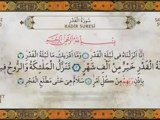 سُورَةُ الْقَدْرِ
KADİR SURESİ
بِسْمِ اللَّهِ الرَّحْمَنِ الرَّحِيمِ
إِنَّا أَنْزَلْنَاهُ فِي لَيْلَةِ الْقَدْرِ وَمَا أَدْرَاكَ مَا لَيْلَةُ الْقَدْرِ لَيْلَةُ
الْقَدْرِ خَيْرٌ مِنْ أَلْفِ شَهْرٍ تَنَزَّلُ الْمَلَائِكَةُ وَالرُّوحُ فِيهَا
بِإِذْنِ رَبِّهِمْ مِنْ كُلِّ أَمْرٍ سَلَامٌ هِيَ حَتَّى مَطْلَعِ الْفَجْرِ